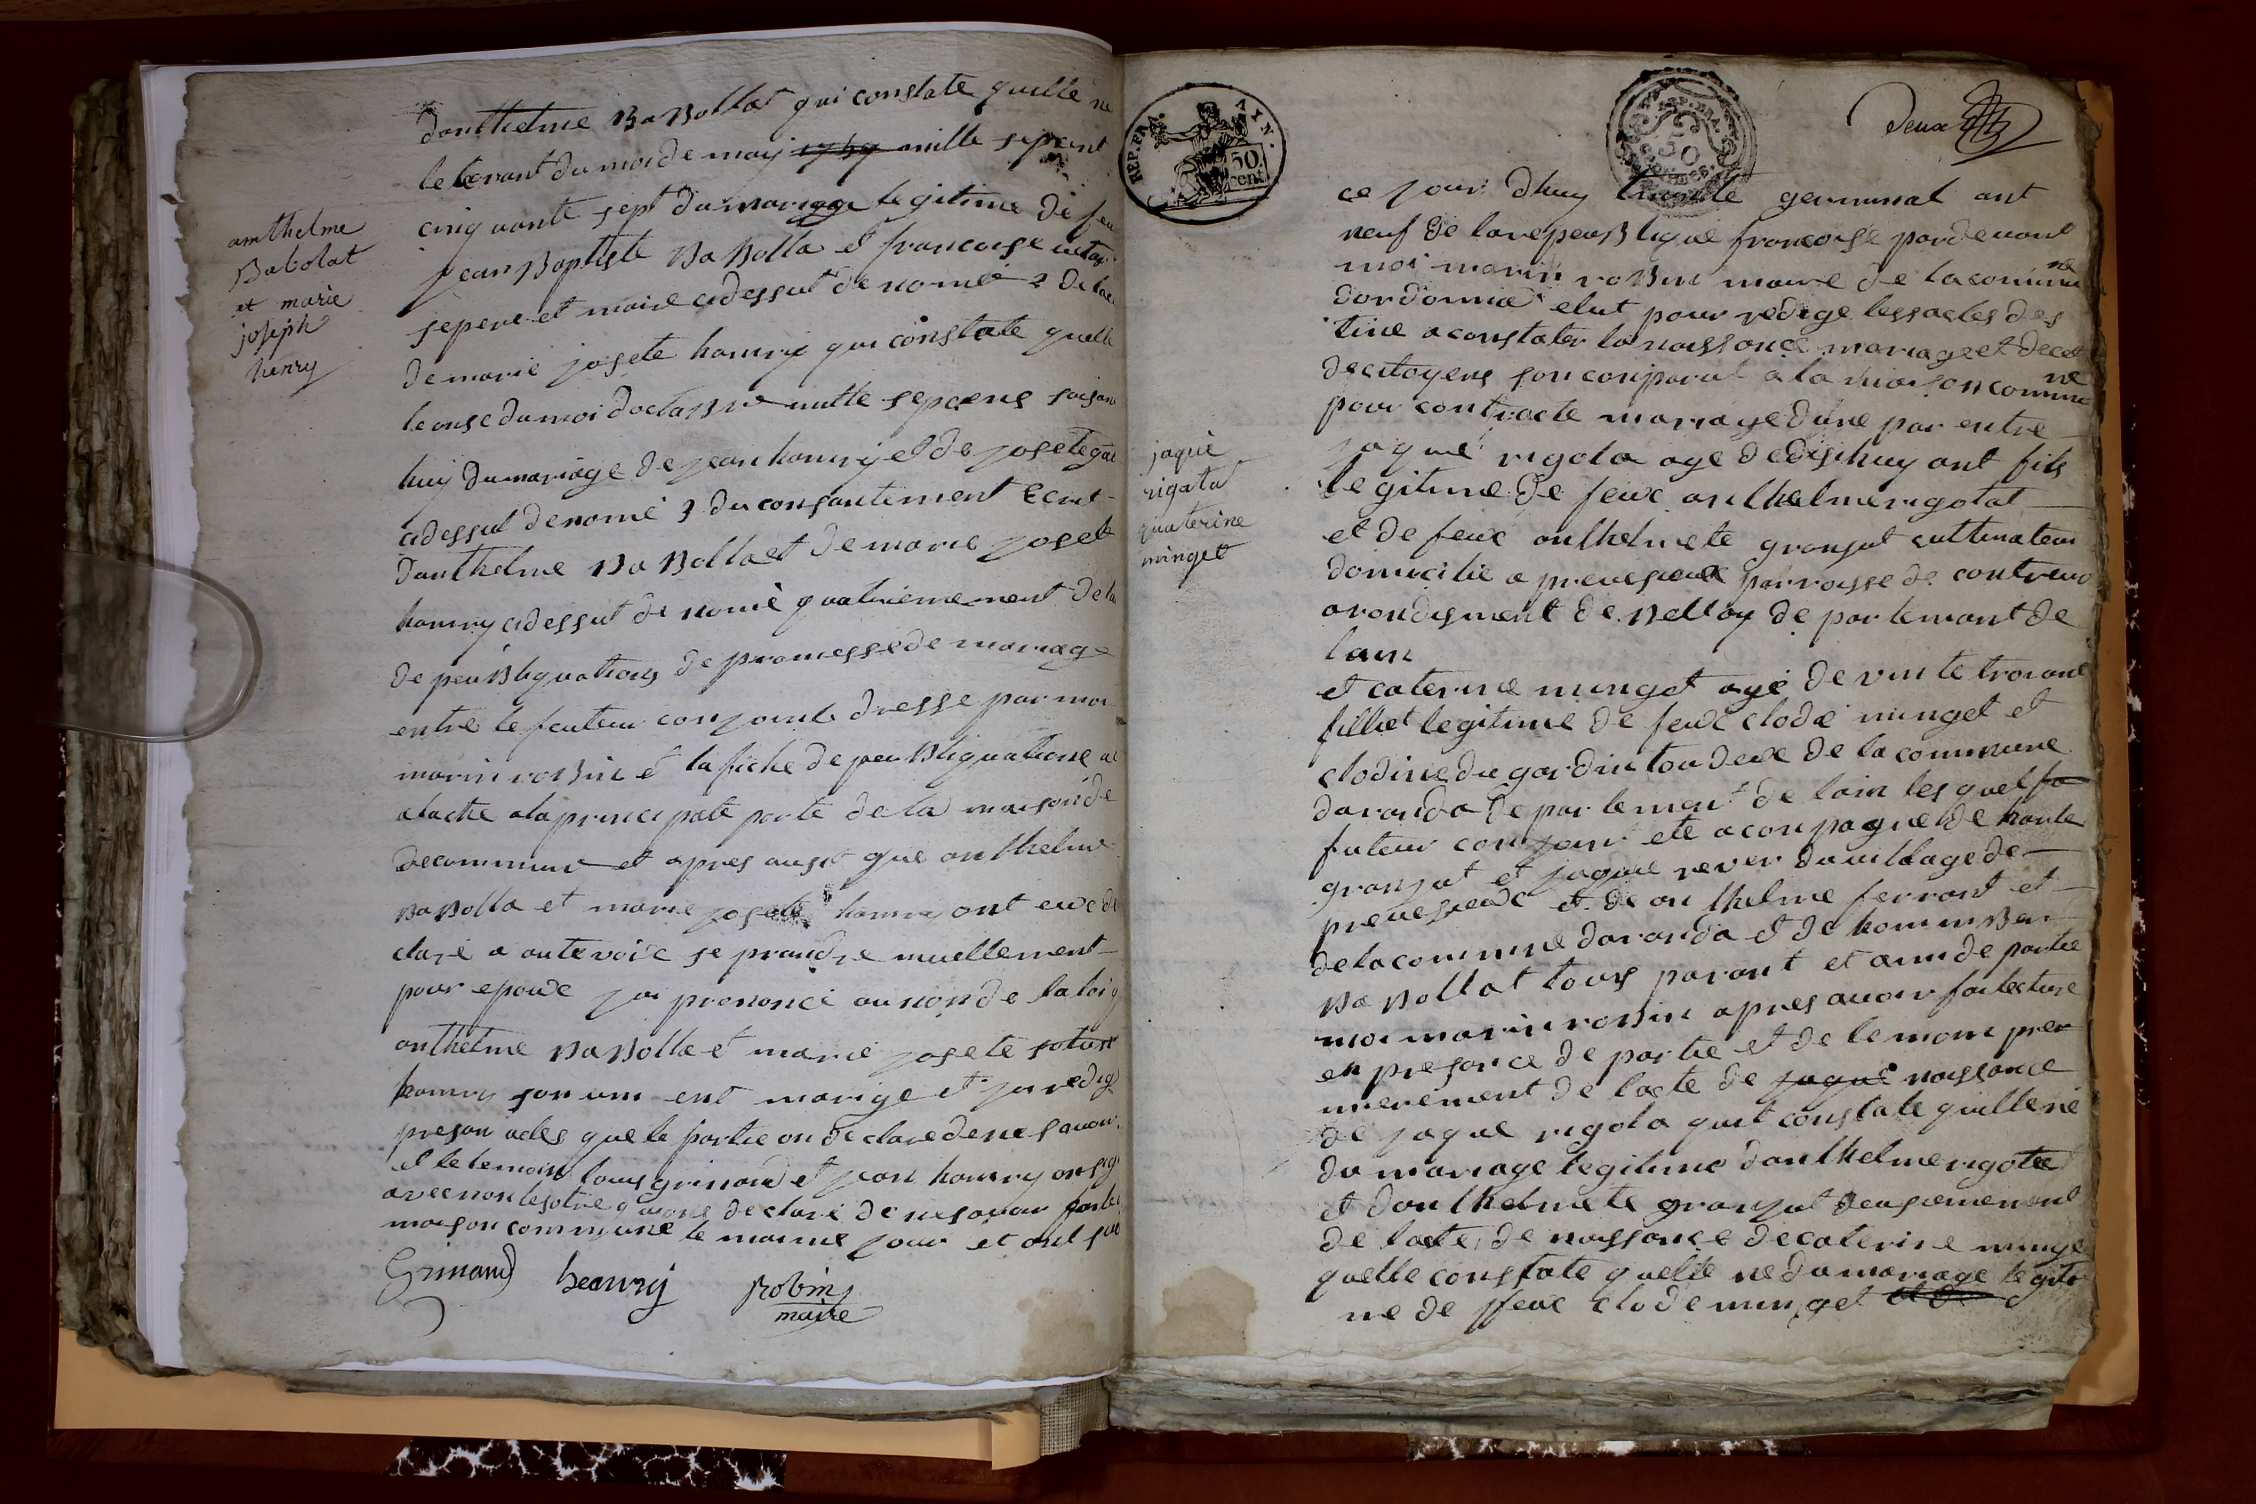 danthelme BaBollat qui constate quille ne
le levant du moi de may 1757 mille sepcent
cinquante sept du mariage legitime de feu
jean Baptiste BaBolla et francoise
se pere et maire cidessut de nomé 2 de lac
de marie josete hanry qui constate quelle
le onse du moi doctaBre mille sepcens soisan
huij du mariage de jean hanry et de josete
cidessut denomé 3 du consantement Ecrit
danthelme BaBolla et de marie josett
hanry cidessut de nomé quatriemement de la
de peuBliquations de promesse de mariage
entre le feuteur conjoint dresse par moi
marin roBin et la fiche de peuBliquatione
atache a la principale porte de la maison de
de commune et apres ausit que anthelme
BaBolla et marie josete hanry ont eux de
claré a aute voix se prandre muellement
pour epoux jai prononcé au nom de la loi q
anthelme BaBolla et marie josete
hanry son uni ent marige et jai redig
presan actes que le partie on declare de ne savoir
et le temoin louis grinand et jean hanry on sig
avec non les otre qu'ons declaré de ne savoir fait
maison commune le maime jour et ant sus
Grinand heanrij Robin
maire
amthelme
Babolat
et marie
joseph
henry
REP. FRA.
AIN.
50.
cent.
deux
jaque
rigolat
quaterine
minget
ce jour dhuy trente germinal ant
neuf de la repeuBlique francoise pardevant
moi marin roBin maire de la commune
dordonna elut pour redige les actes des
tiné a constater la naissance mariage et decet
de citoyens son conparut a la maison commune
pour contracte mariage dune par entre
jaque rigola age de disehuy ant fils
legitime de feux anthelme rigolat
et de feux anthelmete granjat cultivateur
domicilie a prevesieux parroisse de contrevo
arondisment de Bellay de partemant de
lain
et caterine minget agé de vinte trois ant
filliet legitime de feux clode minget et
clodine du gardin tou deux de la commune
daranda de partement de lain les quel fa
futeur conjoin ete aconpagné de hante
granjat et jaque rever du village de
prevesieux et de anthelme ferrant et
de la commune daranda et de hanimBer
BaBollat tous parant et ami de partie
moi marin roBin apres avoir fai lecture
en presance de partie et de le moin prer
mierement de lacte de jaque naissance
de jaque rigola quit constate quille ne
du mariage legitime danthelme rigolat
et danthelmete granjat deusiemement
de lacte de naissance de caterine minge
quelle constate quelle ne du mariage legiti
me de feux clode minget et de